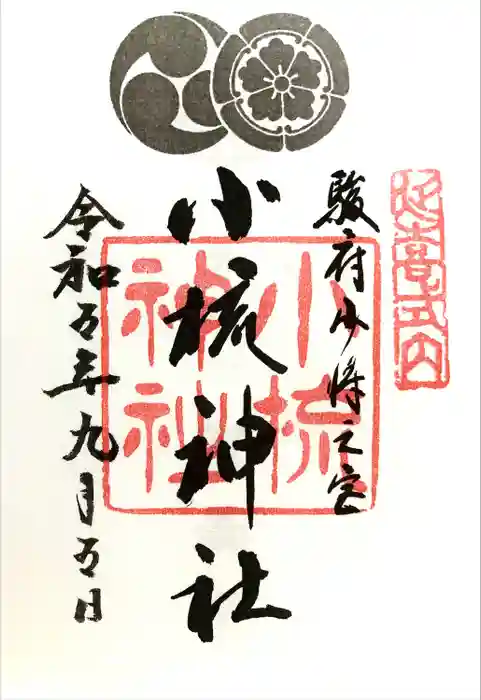 延喜式内
駿府少将之宮
小梳神社
小梳
神社
令和五年九月五日